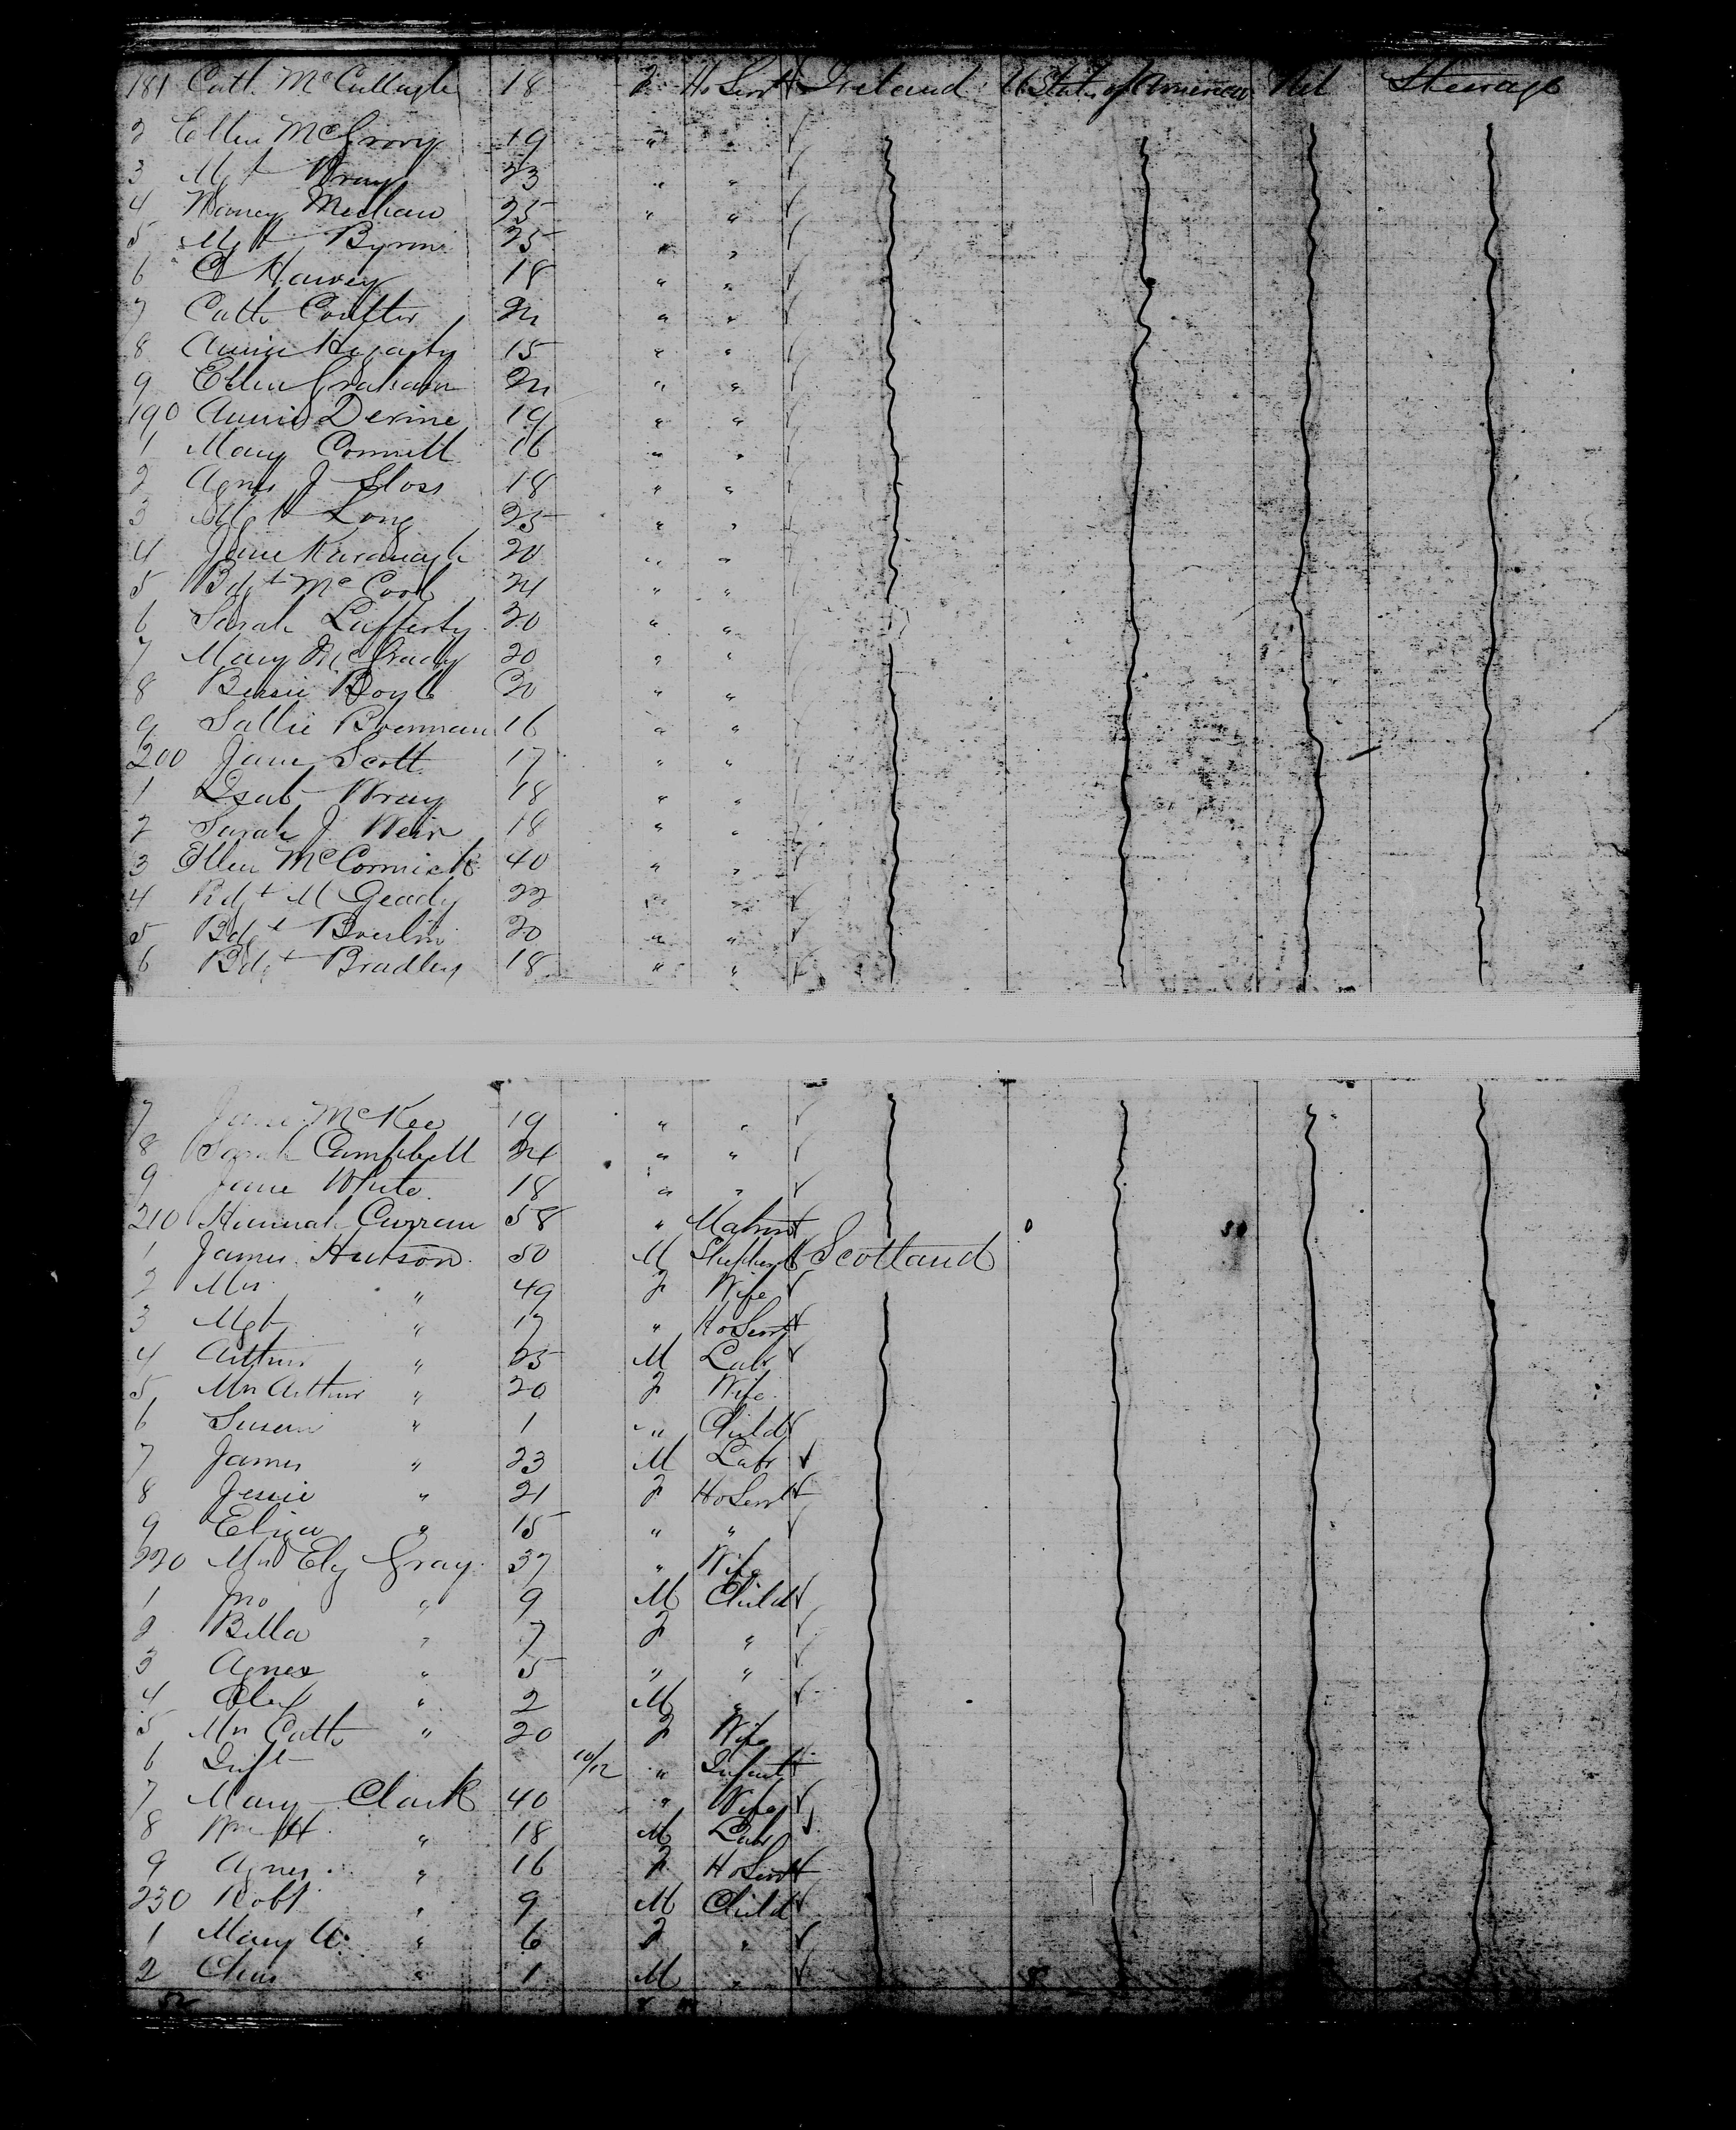 181 Cath. McCullagh 18 F HoServt Ireland U States of America Nil Steerage
2 Ellen McGrory 19 " "
3 Mgt Wray 23 " "
4 Nancy Meehan 25 " "
5 Mgt Byrne 25 " "
6 C Harvey 18 " "
7 Cath Coulter 21 " "
8 Annie Hegarty 15 " "
9 Ellen Graham 21 " "
190 Annie Devine 19 " "
1 Mary Connell 16 " "
2 Agnes J Sloss 18 " "
3 Mgt Long 25 " "
4 Jane Kavanagh 20 " "
5 Bdgt McCool 24 " "
6 Sarah Lafferty 20 " "
7 Mary McGrady 20 " "
8 Bessie Boyle 20 " "
9 Sallie Brennan 16 " "
200 Jane Scott 17 " "
1 Isab Wray 18 " "
2 Sarah J. Weir 18 " "
3 Ellen McCormick 40 " "
4 Bdgt M Geady 22 " "
5 Bdgt Breslin 20 " "
6 Bdgt Bradley 18 " "
7 Jane McKee 19 " "
8 Sarah Campbell 24 " "
9 Jane White 18 " "
210 Hannah Curran 58 " Matron
1 James Hutson 50 M Shepherd Scotland
2 Mrs " 49 F Wife
3 Mgt " 17 " HoServt
4 Arthur " 25 M Labr
5 Mrs Arthur " 20 F Wife
6 Susan " 1 " Child
7 James " 23 M Labr
8 Jessie " 21 F HoServt
9 Eliza " 15 " "
220 Mrs Elz Gray 37 " Wife
1 Jno " 9 M Child
2 Bella " 7 F "
3 Agnes " 5 " "
4 Alex " 2 M "
5 Mrs Cath " 20 F Wife
6 Inft 10/12 " Infant
7 Mary Clark 40 " Wife
8 Wm H " 18 M Labr
9 Agnes " 16 F HoServt
230 Robt " 9 M Child
1 Mary A. " 6 F "
2 Chas " 1 M "